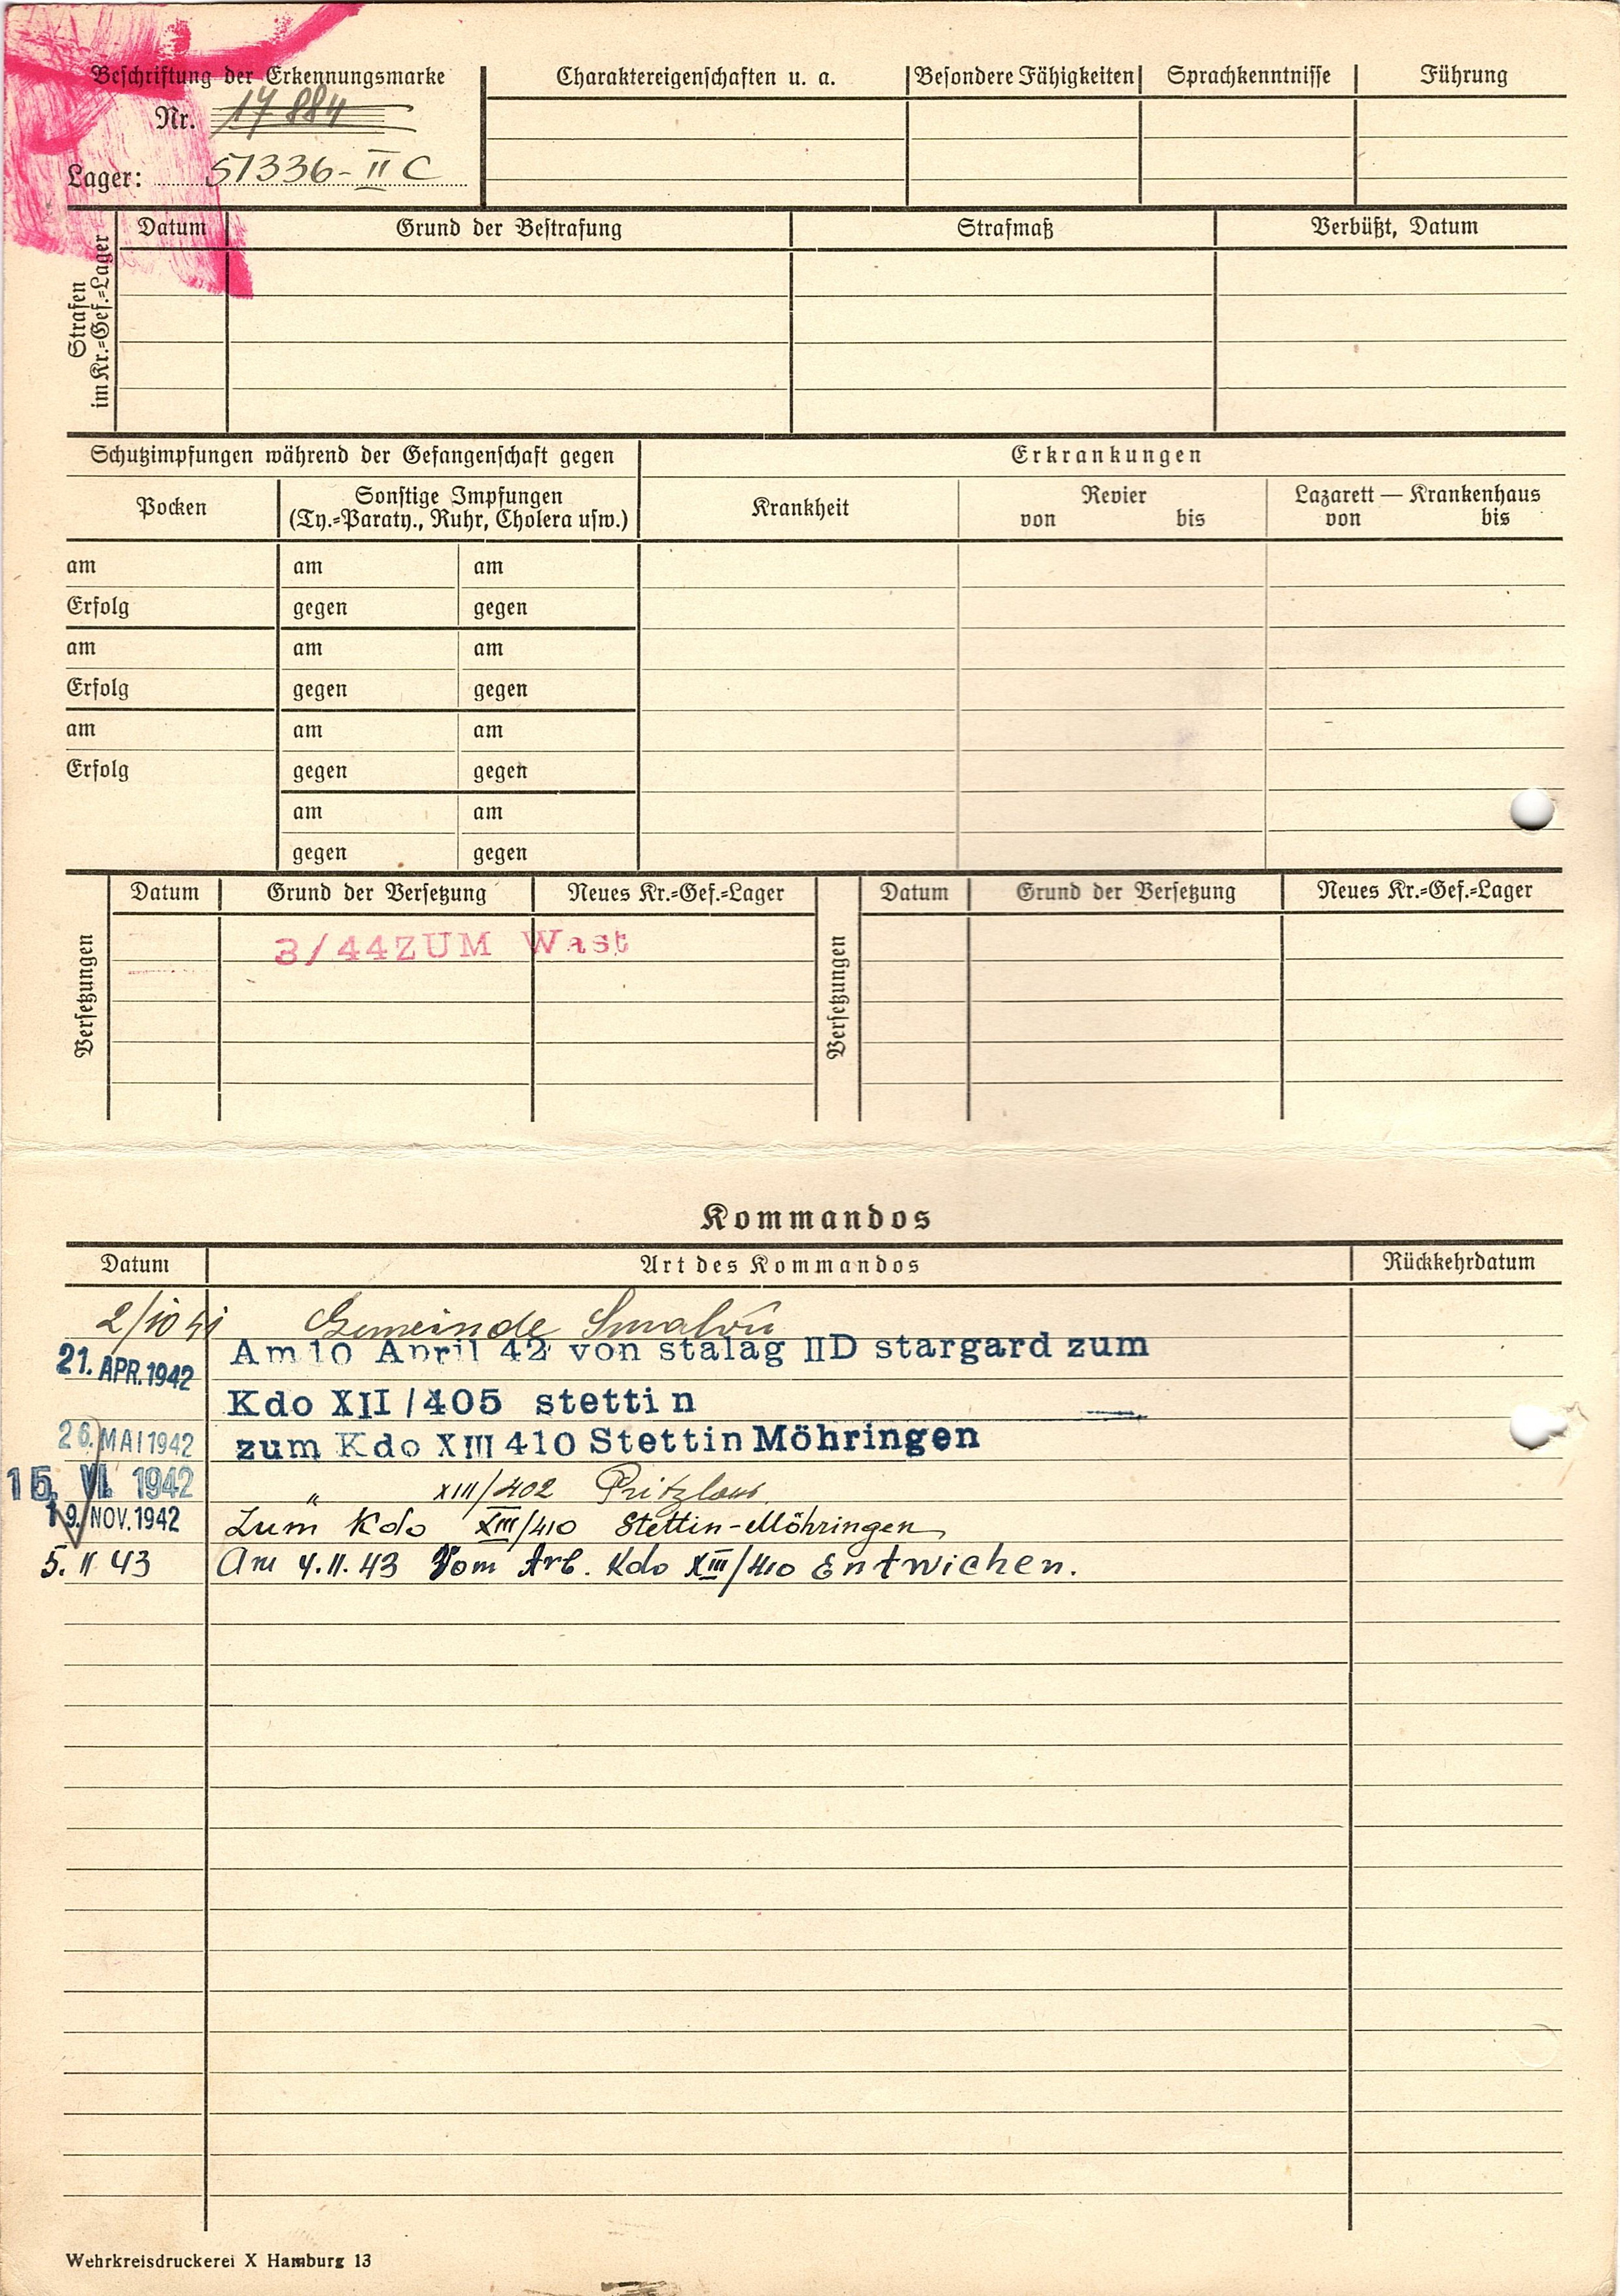 Beschriftung der Erkennungsmarke
Nr. 17 884
Lager: 51336 - II C
Charaktereigenschaften u. a.
Besondere Fähigkeiten
Sprachkenntnisse
Führung
Strafen
im Kr.=Gef.=Lager
Datum
Grund der Bestrafung
Strafmaß
Verbüßt, Datum
Schutzimpfungen während der Gefangenschaft gegen
Erkrankungen
Pocken
Sonstige Impfungen
(Ty.=Paraty., Ruhr, Cholera usw.)
Krankheit
Revier
von bis
Lazarett — Krankenhaus
von bis
am am am
Erfolg gegen gegen
am am am
Erfolg gegen gegen
am am am
Erfolg gegen gegen
am am
gegen gegen
Versetzungen
Datum Grund der Versetzung Neues Kr.=Gef.=Lager
3/44 ZUM Wast
Versetzungen
Datum Grund der Versetzung Neues Kr.=Gef.=Lager
Kommandos
Datum Art des Kommandos Rückkehrdatum
2/10 41 Gemeinde
21. APR. 1942 Am 10 April 42 von stalag IID stargard zum
Kdo XII/405 stettin
26. MAI 1942 zum Kdo XIII 410 Stettin Möhringen
15. VI. 1942 " XIII/402 Pritzlow
19. NOV. 1942 Zum Kdo XIII/410 Stettin-Möhringen
5. II 43 Am 4. II. 43 Vom Arb. Kdo XIII/410 Entwichen.
Wehrkreisdruckerei X Hamburg 13